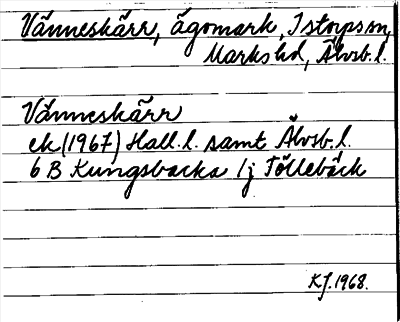 Vänneskärr, ägomark, Istorps sn,
Marks hd, Älvsb.l.
Vänneskärr
ek (1967) Hall.l. samt Älvsb.l.
6 B Kungsbacka 1j Töllebäck
KJ. 1968.